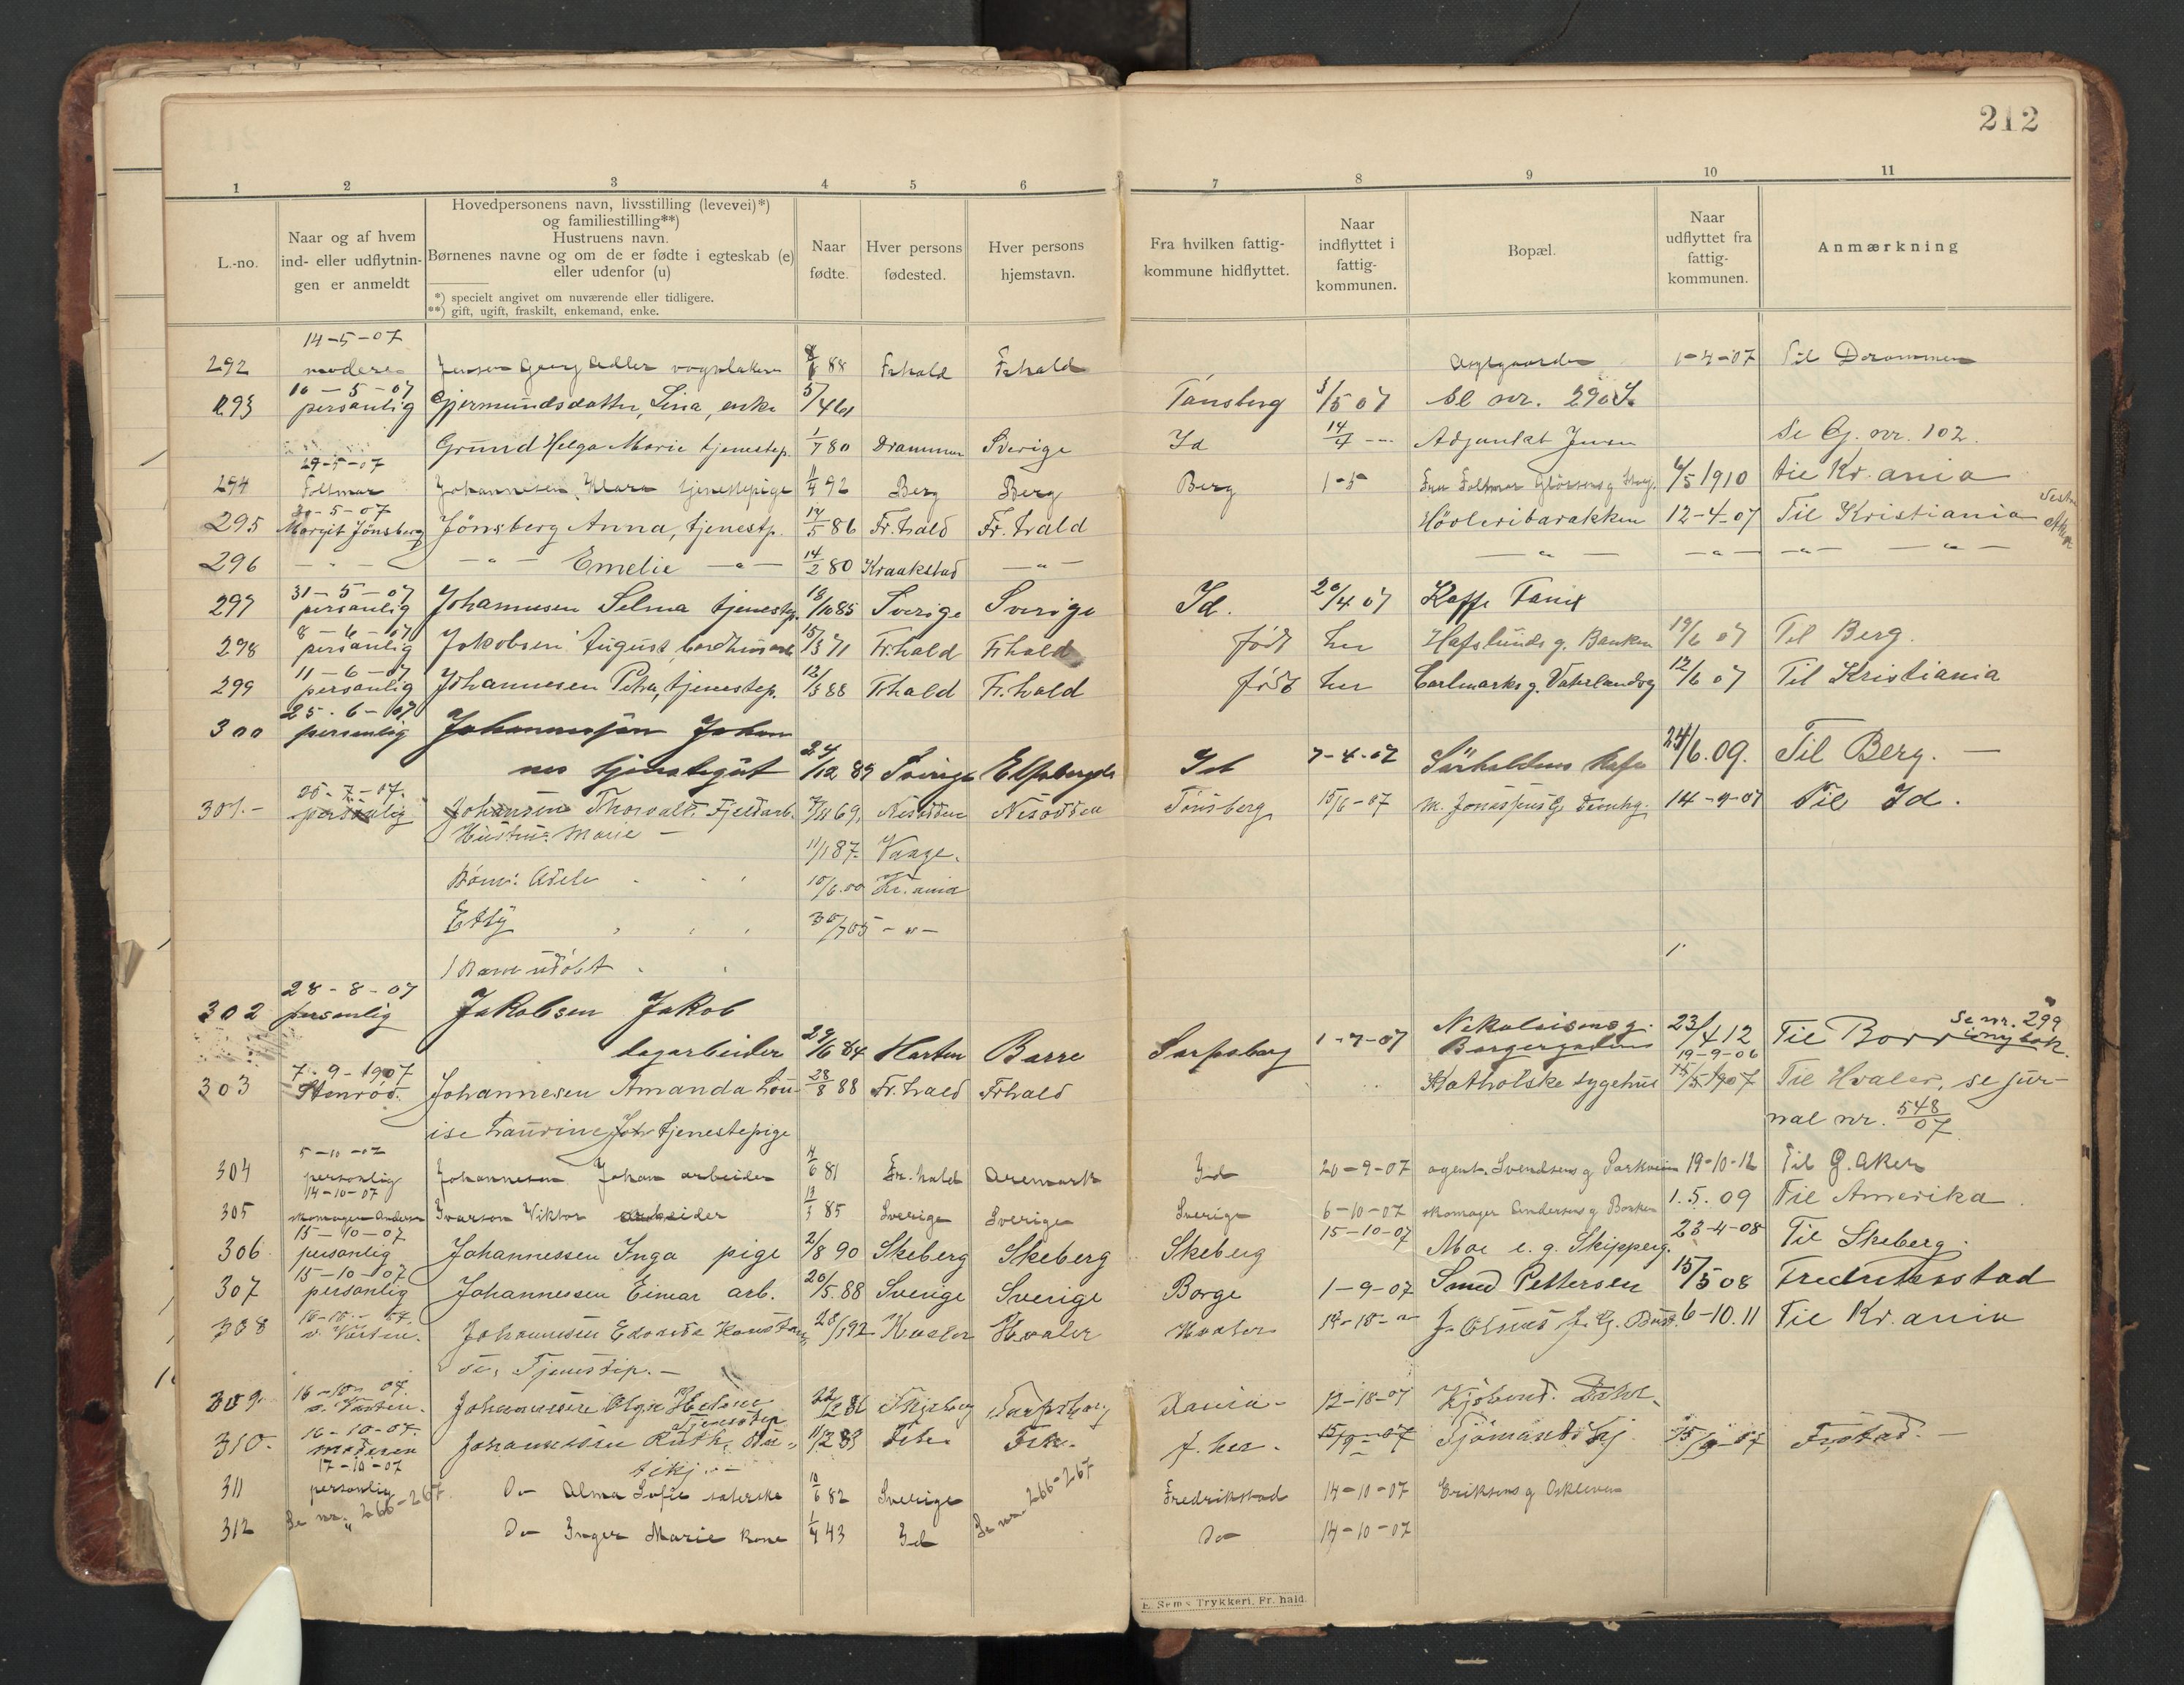 212
1 2 3 4 5 6 7 8 9 10 11
L.-no.
Naar og af hvem ind- eller udflytnin- gen er anmeldt
Hovedpersonens navn, livsstilling (levevei)*)
og familiestilling**)
Hustruens navn.
Børnenes navne og om de er fødte i egteskab (e)
eller udenfor (u)
*) specielt angivet om nuværende eller tidligere.
**) gift, ugift, fraskilt, enkemand, enke.
Naar fødte.
Hver persons fødested.
Hver persons hjemstavn.
Fra hvilken fattig- kommune hidflyttet.
Naar indflyttet i fattig- kommunen.
Bopæl.
Naar udflyttet fra fattig- kommunen.
Anmærkning
14-5-07
292 moderen Jensen Georg Adler 88 Frhald Frhald 1-4-07 Til Drammen
10-5-07
293 personlig Gjermundsdatter, Lina, enke 5/ Tønsberg 3/5 07 Se nr. 290
Grund Helga Marie tjenestep. 1/7 80 Drammen Sverige Id 14/4 Adjunkt Jensen Se G. nr. 102.
29-5-07
294 Foltmar Johannesen, Klara tjenestepige 11/4 92 Berg Berg Berg 1-5 Fru Foltmar 6/5 1910 til Kr.ania
30-5-07
295 Margit Jönsberg Jönsberg Anna, tjenestp. 14/5 86 Fr.hald Fr.hald Hövleribarakken 12-4-07 Til Kristiania
296 - " - - " - Emelie - " - 14/2 80 Kraakstad - " - - " - - " - - " - - " -
31-5-07
297 personlig Johannesen Selma tjenestep. 18/10 85 Sverige Sverige Id. 20/4 07 Kaffe Tanif
8-6-07
298 personlig Jakobsen August, 15/3 71 Fr.hald Frhald født her Hafslunds g. Banken 19/6 07 Til Berg.
11-6-07
299 personlig Johannesen Petra, tjenestep. 12/3 88 Frhald Fr.hald født her Carlmarks g. Vaterlandsg 12/6 07 Til Kristiania
25-6-07
300 personlig Johannesjen Johan
nes tjenestegut 24/12 89 Sverige Elfsborgs Id 7-4-07 Sörhaldens Kafe 24/6.09. Til Berg. -
05-7-07.
301.- personlig Johansen Thorvalt, Fjeldarb. 69, Nesodden Nesodden Tönsberg 15/6-07 14-9-07 Til Id.
Hustru: Marie - 11/1 87. Vange.
Börn: Adele 10/6.00 Kr.ania
Etty 30/7 05 - " -
1 Barn udöbt
28-8-07
302 personlig Jakobsen Jakob
dagarbeider 29/6 84 Barre Sarpsborg 1-7-07 Nikolaisens g. Borgergadens 23/4 12 Til Borr Se nr. 299 i ny bok.
7-9-1907 19-9-06
303 Stenrød. Johannesen Amanda Lou- 28/8 88 Fr.hald Frhald Katholske sygehus 15/5 1907 Til Hvaler, se jur-
ise Laurine tjenestepige nal nr. 548/07
5-10-07
304 personlig Johannesen Johan arbeider 4/6 81 Fr.hald Aremark Id 20-9-07 agent. Svendsens g Parkveien 19-10-12 Til G. Aker
14-10-07
305 skomager Andersen Ivarson Viktor arbeider 85 Sverige Sverige Sverige 6-10-07 skomager Andersens g Banken 1.5.09 Til Amerika.
15-10-07
306 personlig Johannessen Inga pige 2/8 90 Skeberg Skeberg Skeberg 15-10-07 Moe e. g. Skipperg. 23-4-08 Til Skeberg.
15-10-07
307 personlig Johannessen Einar arb. 20/5.88 Sverige Sverige Borge 1-9-07 Smed Pettersen 15/5 08 Fredriksstad
308 Johannesen Edvarda Konstan 28/1 92 Hvaler Hvaler Hvaler 6-10.11 Til Kr.ania
se, Tjenestep. -
309 Johannesen Olga Helene Tjenestep 22/ Skjeberg Sarpsborg Xania- Kjöbmd. Dahl
16-10-07.
310. moderen Johannessen Ruth, Bu- 11/2 83 f. her. 15/9-07 15/9 07 Frstad. -
tikj. -
17-10-07
311 personlig Do Alma Sofie 10/6 82 Sverige Se nr. 266-267 Fredrikstad 14-10-07 Eriksens g Oskleven
312 Se nr. 266-267 Do Inger Marie kone 1/4 43 Id Do 14-10-07
E. Sems Trykkeri, Fr.hald.